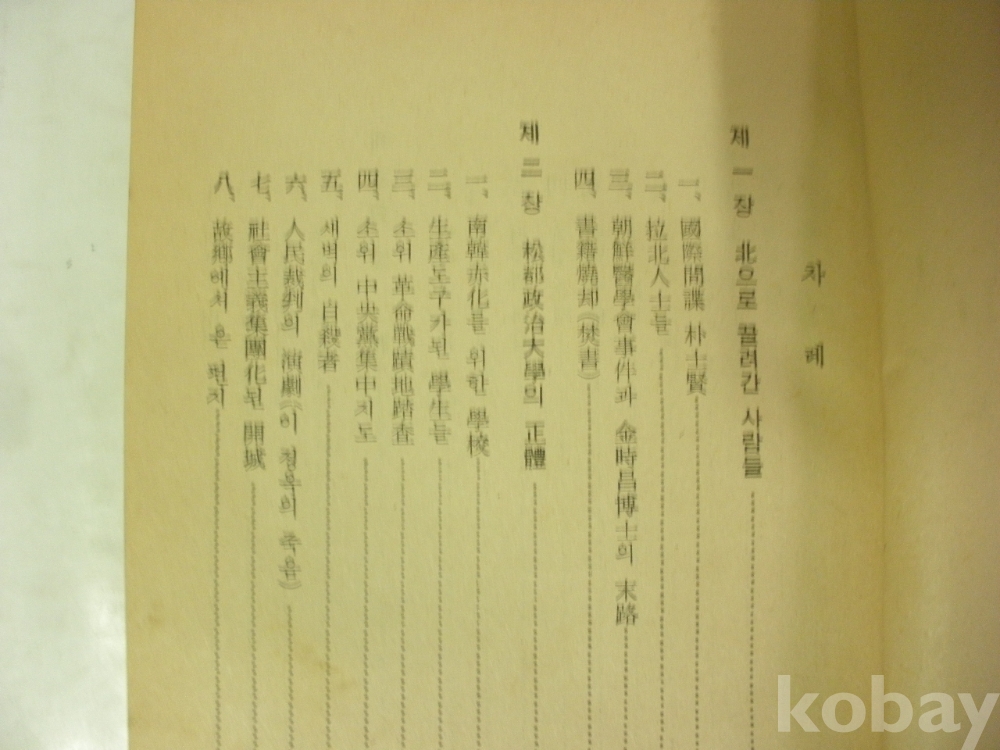 차례
제一장 北으로 끌려간 사람들
一、國際間諜 朴士賢
二、拉北人士들
三、朝鮮醫學會事件과 金時昌博士의 末路
四、書籍燒却《焚書》
제二장 松都政治大學의 正體
一、南韓赤化를 위한 學校
二、生産도구가된 學生들
三、소위 革命戰蹟地踏査
四、소위 中央黨集中지도
五、새벽의 自殺者
六、人民裁判의 演劇《이 청우의 죽음》
七、社會主義集團化된 開城
八、故鄕에서 온 편지
kobay